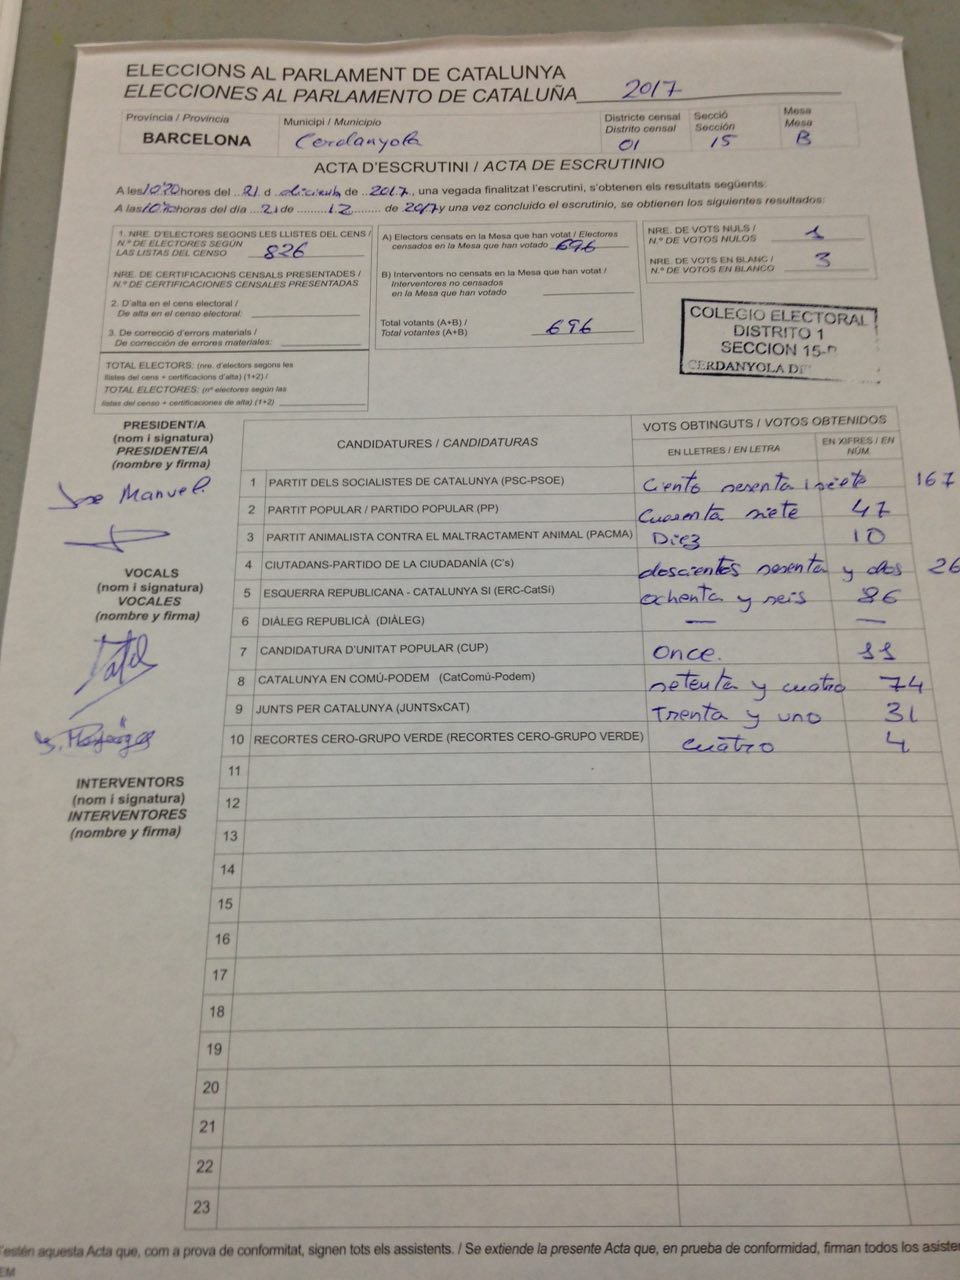 ELECCIONS AL PARLAMENT DE CATALUNYA
ELECCIONES AL PARLAMENTO DE CATALUÑA 2017
Província / Provincia
BARCELONA
Municipi / Municipio
Cerdanyola
Districte censal
Distrito censal
01
Secció
Sección
15
Mesa
Mesa
B
ACTA D'ESCRUTINI / ACTA DE ESCRUTINIO
A les hores del 21 d diciembre de 2017, una vegada finalitzat l'escrutini, s'obtenen els resultats següents:
A las horas del día 21 de 12 de 2017 y una vez concluido el escrutinio, se obtienen los siguientes resultados:
1. NRE. D'ELECTORS SEGONS LES LLISTES DEL CENS /
N.º DE ELECTORES SEGÚN
LAS LISTAS DEL CENSO 826
NRE. DE CERTIFICACIONS CENSALS PRESENTADES /
N.º DE CERTIFICACIONES CENSALES PRESENTADAS
2. D'alta en el cens electoral /
De alta en el censo electoral:
3. De correcció d'errors materials /
De corrección de errores materiales:
TOTAL ELECTORS: (nre. d'electors segons les
llistes del cens + certificacions d'alta) (1+2) /
TOTAL ELECTORES: (nº electores según las
listas del censo + certificaciones de alta) (1+2)
A) Electors censats en la Mesa que han votat / Electores
censados en la Mesa que han votado 696
B) Interventors no censats en la Mesa que han votat /
Interventores no censados
en la Mesa que han votado
Total votants (A+B) /
Total votantes (A+B) 696
NRE. DE VOTS NULS /
N.º DE VOTOS NULOS 1
NRE. DE VOTS EN BLANC /
N.º DE VOTOS EN BLANCO 3
COLEGIO ELECTORAL
DISTRITO 1
SECCION 15-
CERDANYOLA DE
PRESIDENT/A
(nom i signatura)
PRESIDENTE/A
(nombre y firma)
Jose Manuel
VOCALS
(nom i signatura)
VOCALES
(nombre y firma)
INTERVENTORS
(nom i signatura)
INTERVENTORES
(nombre y firma)
CANDIDATURES / CANDIDATURAS
VOTS OBTINGUTS / VOTOS OBTENIDOS
EN LLETRES / EN LETRA
EN XIFRES / EN NÚM
1 PARTIT DELS SOCIALISTES DE CATALUNYA (PSC-PSOE) Ciento sesenta i siete 167
2 PARTIT POPULAR / PARTIDO POPULAR (PP) Cuarenta siete 47
3 PARTIT ANIMALISTA CONTRA EL MALTRACTAMENT ANIMAL (PACMA) Diez 10
4 CIUTADANS-PARTIDO DE LA CIUDADANÍA (C's) doscientos sesenta y dos 26
5 ESQUERRA REPUBLICANA - CATALUNYA SI (ERC-CatSí) ochenta y seis 86
6 DIÀLEG REPUBLICÀ (DIÀLEG) — —
7 CANDIDATURA D'UNITAT POPULAR (CUP) Once. 11
8 CATALUNYA EN COMÚ-PODEM (CatComú-Podem) setenta y cuatro 74
9 JUNTS PER CATALUNYA (JUNTSxCAT) Trenta y uno 31
10 RECORTES CERO-GRUPO VERDE (RECORTES CERO-GRUPO VERDE) cuatro 4
11
12
13
14
15
16
17
18
19
20
21
22
23
'estén aquesta Acta que, com a prova de conformitat, signen tots els assistents. / Se extiende la presente Acta que, en prueba de conformidad, firman todos los asiste
EM